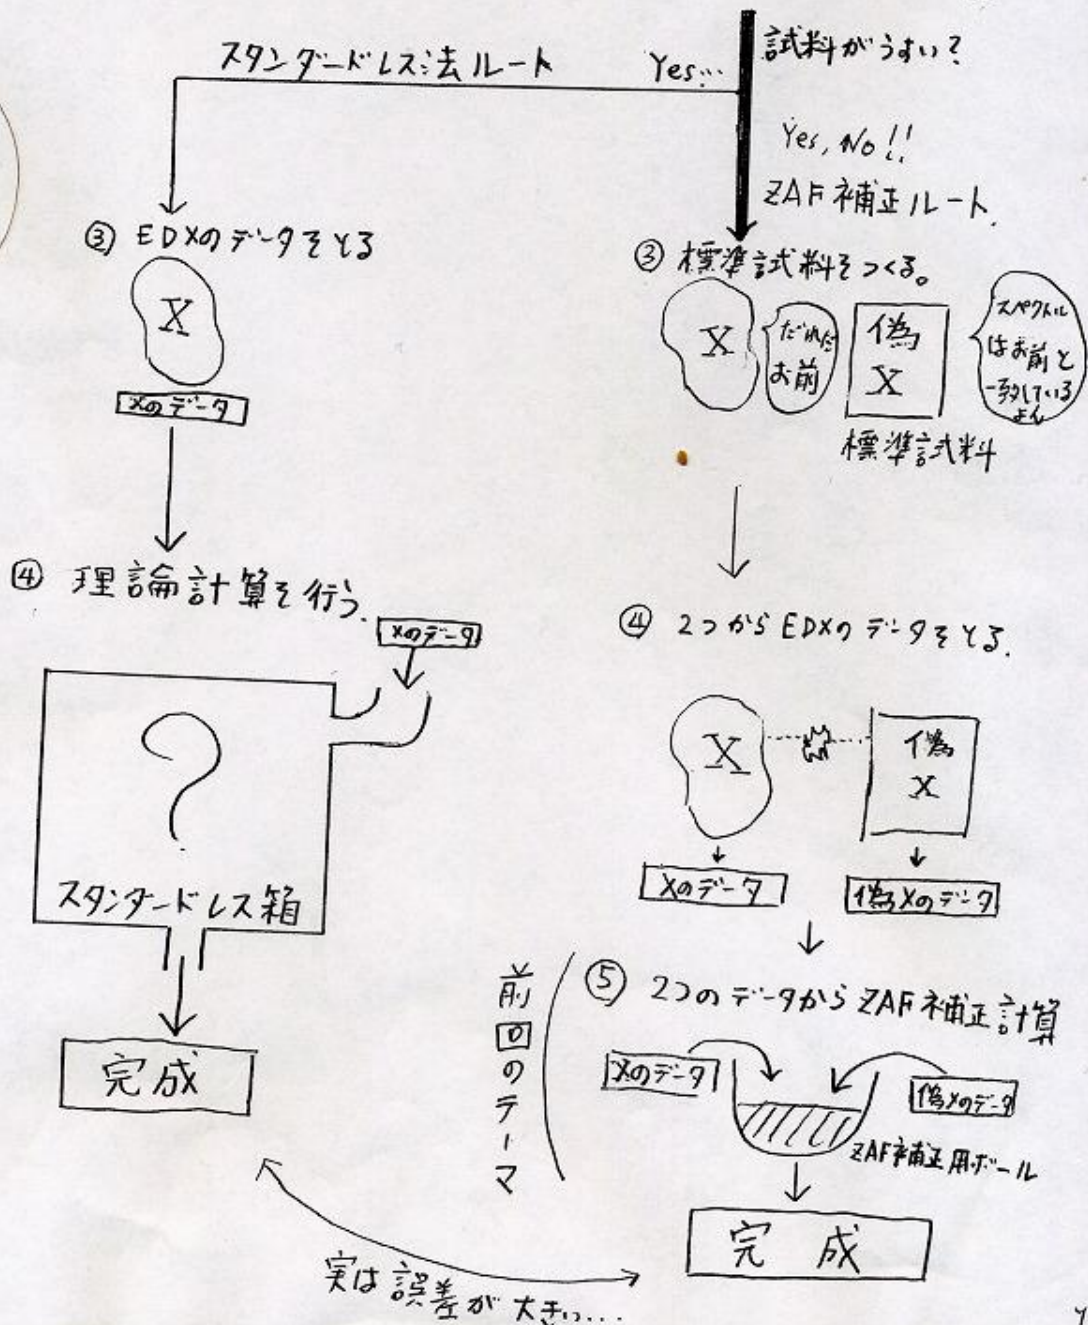 試料がうすい?
スタンダードレス法ルート
Yes...
Yes, No!!
ZAF補正ルート.
③ EDXのデータをとる
X
Xのデータ
④ 理論計算を行う.
Xのデータ
?
スタンダードレス箱
完成
③ 標準試料をつくる。
X
だれだ
お前
偽
X
スペクトル
はお前と
一致している
よん
標準試料
④ 2つからEDXのデータをとる.
X
偽
X
Xのデータ
偽Xのデータ
前回のテーマ
⑤ 2つのデータからZAF補正計算
Xのデータ
偽Xのデータ
ZAF補正用ボール
完成
実は誤差が大きい...